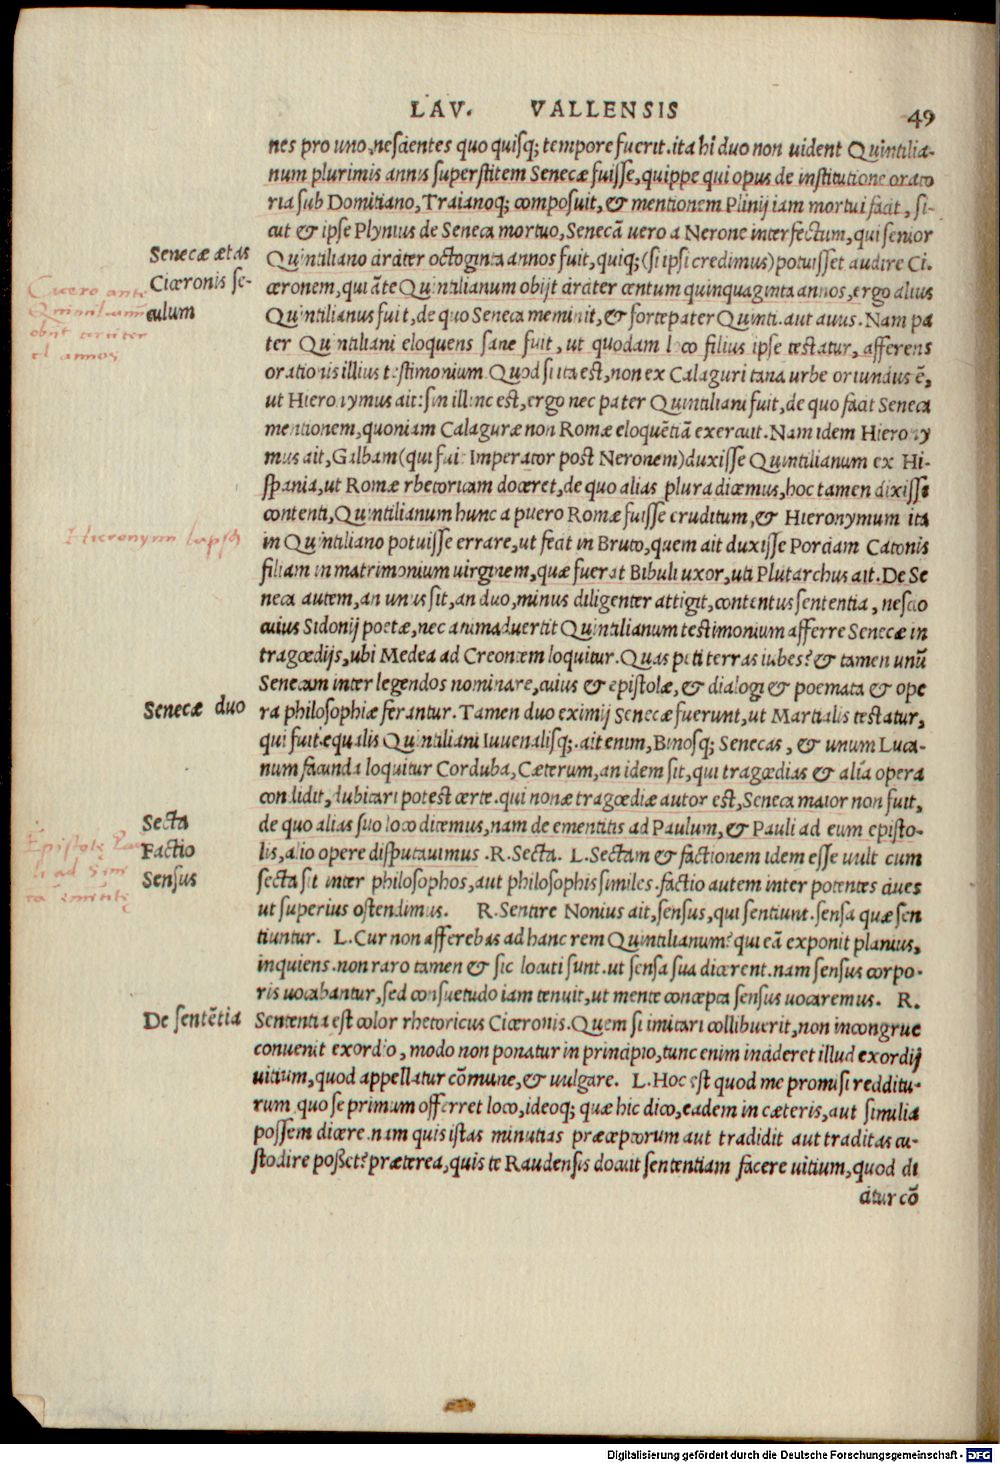 LAV. VALLENSIS
49
nes pro uno, nescientes quo quisq; tempore fuerit. ita hi duo non uident Quintilia-
num plurimis annis superstitem Senecæ fuisse, quippe qui opus de institutione orato
ria sub Domitiano, Traianoq; composuit, & mentionem Plinij iam mortui facit, si-
cut & ipse Plynius de Seneca mortuo, Senecā uero a Nerone interfectum, qui senior
Senecæ ætas
Quintiliano circiter octoginta annos fuit, quiq; (si ipsi credimus) potuisset audire Ci.
Ciceronis se-
ceronem, qui āte Quintilianum obijt circiter centum quinquaginta annos, ergo alius
culum
Quintilianus fuit, de quo Seneca meminit, & forte pater Quinti. aut auus. Nam pa
Cicero ante
Quintilianū
obijt circiter
cl annos
ter Quintiliani eloquens sane fuit, ut quodam loco filius ipse testatur, afferens
orationis illius testimonium. Quod si ita est, non ex Calaguritana urbe oriundus ē,
ut Hieronymus ait: sin illinc est, ergo nec pater Quintiliani fuit, de quo facit Seneca
mentionem, quoniam Calaguræ non Romæ eloquētiā exercuit. Nam idem Hierony
mus ait, Galbam (qui fuit Imperator post Neronem) duxisse Quintilianum ex Hi-
spania, ut Romæ rhetoricam doceret, de quo alias plura dicemus, hoc tamen dixisse
contenti, Quintilianum hunc a puero Romæ fuisse eruditum, & Hieronymum ita
Hieronymi lapsus
in Quintiliano potuisse errare, ut fecit in Bruto, quem ait duxisse Porciam Catonis
filiam in matrimonium uirginem, quæ fuerat Bibuli uxor, uti Plutarchus ait. De Se
neca autem, an unus sit, an duo, minus diligenter attigit, contentus sententia, nescio
cuius Sidonij poetæ, nec animaduertit Quintilianum testimonium afferre Senecæ in
tragœdijs, ubi Medea ad Creontem loquitur. Quas peti terras iubes? & tamen unū
Senecam inter legendos nominare, cuius & epistolæ, & dialogi & poemata & ope
Senecæ duo
ra philosophiæ ferantur. Tamen duo eximij Senecæ fuerunt, ut Martialis testatur,
qui fuit equalis Quintiliani Iuuenalisq;. ait enim, Binosq; Senecas, & unum Luca-
num facunda loquitur Corduba, Cæterum, an idem sit, qui tragœdias & alia opera
condidit, dubitari potest certe. qui nonæ tragœdiæ autor est, Seneca maior non fuit,
Secta
de quo alias suo loco dicemus, nam de ementitis ad Paulum, & Pauli ad eum episto-
Factio
lis, alio opere disputauimus. R. Secta. L. Sectam & factionem idem esse uult cum
Sensus
secta sit inter philosophos, aut philosophis similes. factio autem inter potentes ciues
ut superius ostendimus. R. Sentire Nonius ait, sensus, qui sentiunt. sensa quæ sen
tiuntur. L. Cur non afferebas ad hanc rem Quintilianum? qui eā exponit planius,
inquiens. non raro tamen & sic locuti sunt. ut sensa sua dicerent. nam sensus corpo-
ris uocabantur, sed consuetudo iam tenuit, ut mente concepta sensus uocaremus. R.
De sentētia
Sententia est color rhetoricus Ciceronis. Quem si imitari collibuerit, non incongrue
conuenit exordio, modo non ponatur in principio, tunc enim incideret illud exordij
uitium, quod appellatur cōmune, & uulgare. L. Hoc est quod me promisi redditu-
rum quo se primum offerret loco, ideoq; quæ hic dico, eadem in cæteris, aut similia
possem dicere. nam quis istas minutias præceptorum aut tradidit aut traditas cu-
stodire posset? præterea, quis te Raudensis docuit sententiam facere uitium, quod di
citur cō
Digitalisierung gefördert durch die Deutsche Forschungsgemeinschaft - DFG